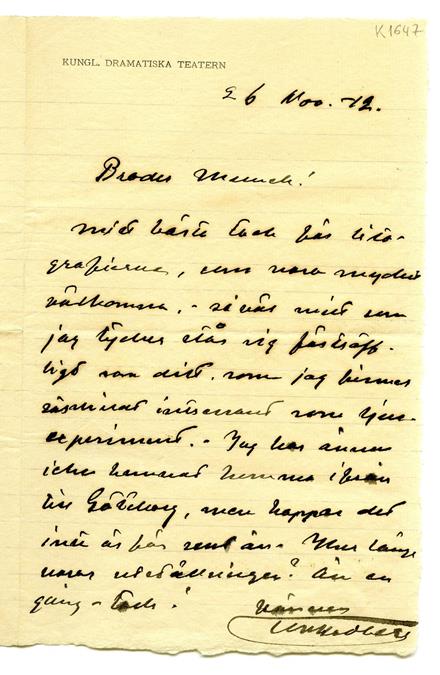 K1647
KUNGL. DRAMATISKA TEATERN
26 Nov. -12.
Broder Munch!
mitt bästa tack för lito-
grafierna, som voro mycket
välkomna, - såväl mitt som
jag tycker står sig förträff-
ligt som ditt, som jag finner
särskildt intressant som ljus-
experiment. - Jag har ännu
icke kommit hemma ifrån
till Göteborg, men hoppas det
inte är för sent än - Hur länge
varar utställningen? Än en
gång - tack!
Vännen